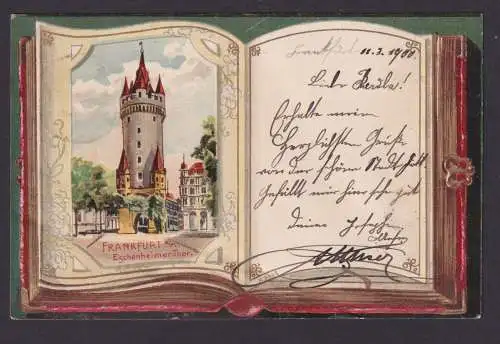 FRANKFURT a/M.
Eschenheimer Thor.
Frankfurt 11.3.1900
Liebe
Erhalte meine
Herzlichsten Grüße
von der schönen Stadt
Gefällt mir hier sehr gut
deine